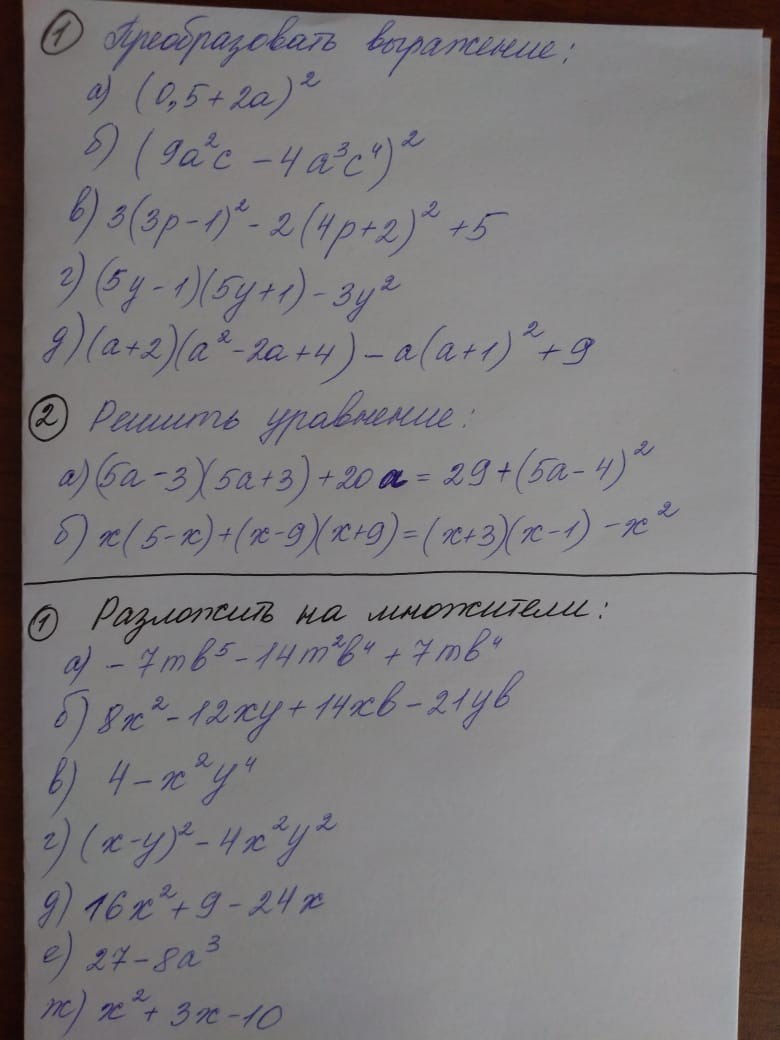 ① Преобразовать выражение:
а) (0,5+2a)²
б) (9a²c - 4a³c⁴)²
в) 3(3p-1)² - 2(4p+2)² +5
г) (5y-1)(5y+1) - 3y²
д) (a+2)(a²-2a+4) - a(a+1)² + 9
② Решить уравнение:
а) (5a-3)(5a+3) + 20a = 29+(5a-4)²
б) x(5-x)+(x-9)(x+9)=(x+3)(x-1) - x²
① Разложить на множители:
а) -7mb⁵ - 14m²b⁴ + 7mb⁴
б) 8x² - 12xy + 14xb - 21yb
в) 4 - x²y⁴
г) (x-y)² - 4x²y²
д) 16x² + 9 - 24x
е) 27 - 8a³
ж) x² + 3x - 10